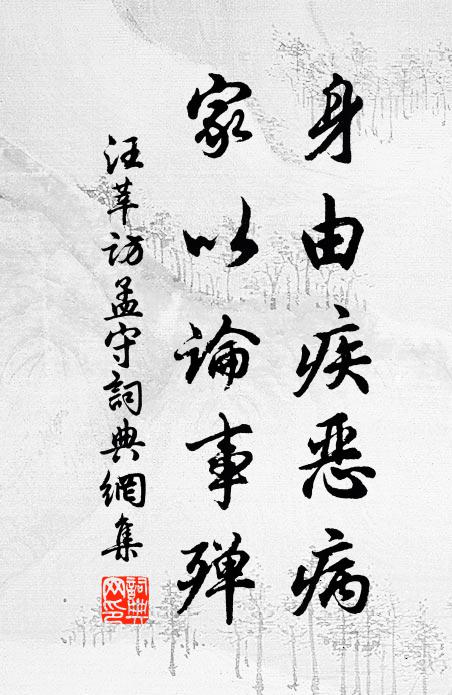 身由疾恶病
家以論事殫
汪莘訪孟守詞典網集
詞典网印